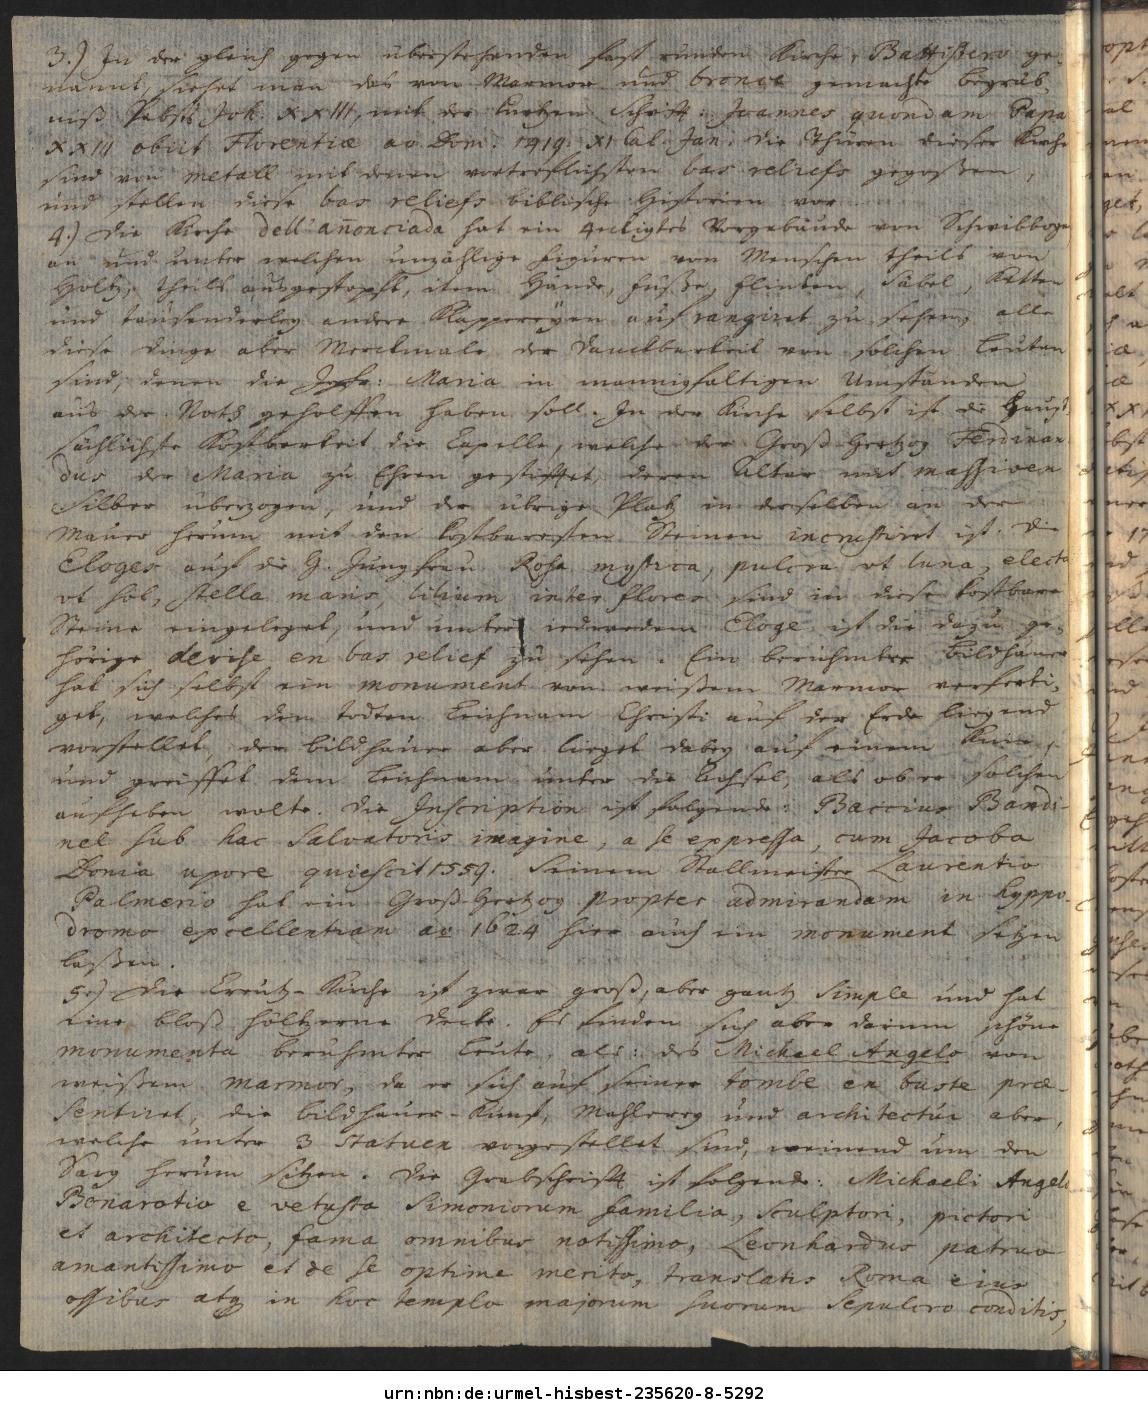 3.) In der gleich gegen überstehenden fast runden Kirche, Battistero ge-
nannt, siehet man das von Marmor und bronce gemachte begräb-
niß Pabsts Joh. XXIII, mit der kurtzen Schrifft: Joannes quondam Papa
XXIII obiit Florentiæ ao Dom. 1419. XI Cal. Jan. die Thüren dieser Kirche
sind von metall mit denen vortreflichsten bas reliefs gegoßen,
und stellen diese bas reliefs biblische Historien vor.
4.) Die Kirche dell' añonciada hat ein 4eckigtes Vorgebäude von Schwibbogen
an und unter welchen unzählige figuren von Menschen theils von
Holtz, theils ausgestopft, item Hände, füße, flinten, Säbel, Ketten
und tausenderley andere Klappereÿen auf rangiret zu sehen, alle
diese dinge aber Merckmale der danckbarkeit von solchen Leuten
sind, denen die Jgfr: Maria in mannigfaltigen Umständen
aus der Noth geholffen haben soll. In der Kirche selbst ist die Haupt
sächlichste Kostbarkeit die Capelle, welche der Groß-Hertzog Ferdinan-
dus der Maria zu Ehren gestifftet, deren Altar mit massiven
Silber überzogen, und der übrige Platz in derselben an der
Mauer herum mit den kostbaresten Steinen incrustiret ist. Die
Eloges auf die H. Jungfrau Rosa mystica, pulcra ut luna, electa
ut sol, stella maris, lilium inter flores sind in diese kostbare
Steine eingeleget, und unter iedwedem Eloge ist die dazu ge-
hörige devise en bas relief zu sehen. Ein berühmter Bildhauer
hat sich selbst ein monument von weißem Marmor verferti-
get, welches den todten Leichnam Christi auf der Erde liegend
vorstellet, der bildhauer aber lieget dabey auf einem Knie,
und greiffet dem Leichnam unter die Achsel, als ob er solchen
aufheben wolte. Die Inscription ist folgende: Baccius Bandi-
nel sub hac Salvatoris imagine, a se expressa, cum Jacoba
Donia uxore quiescit 1559. Seinem Stallmeister Laurentio
Palmerio hat ein Groß-Hertzog propter admirandam in hyppo-
dromo excellentiam ao 1624 hier auch ein monument setzen
laßen.
5.) Die Creutz-Kirche ist zwar groß, aber gantz simple und hat
eine bloß höltzerne decke. Es finden sich aber darinn schöne
monumenta berühmter Leute, als: des Michael Angelo von
weißem marmor, da er sich auf seiner tombe en buste præ-
sentiret, die bildhauer-Kunst, Mahlerey und architectur aber,
welche unter 3 statuen vorgestellet sind, weinend um den
Sarg herum sitzen. Die Grabschrifft ist folgende: Michaeli Angelo
Bonarotio e vetusta Simoniorum familia, sculptori, pictori
et architecto, fama omnibus notissimo, Leonhardus patruo
amantissimo et de se optime merito, translatis Roma eius
ossibus atq in hoc templo majorum suorum sepulcro conditis,
urn:nbn:de:urmel-hisbest-235620-8-5292